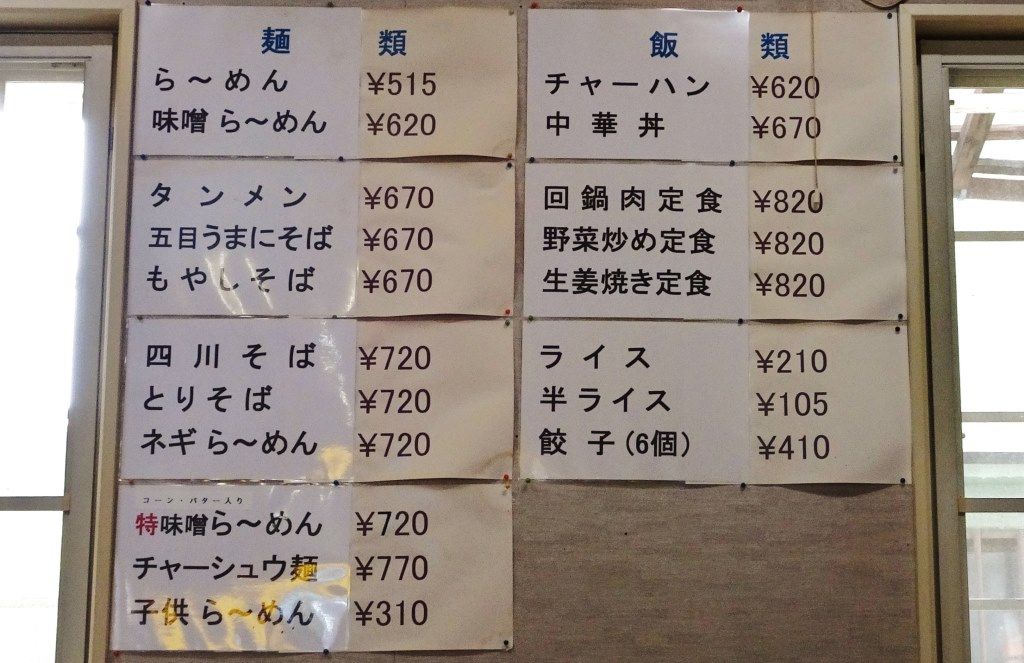 麺 類
ら～めん ¥515
味噌ら～めん ¥620
タンメン ¥670
五目うまにそば ¥670
もやしそば ¥670
四川そば ¥720
とりそば ¥720
ネギら～めん ¥720
コーン・バター入り
特味噌ら～めん ¥720
チャーシュウ麺 ¥770
子供ら～めん ¥310
飯 類
チャーハン ¥620
中華丼 ¥670
回鍋肉定食 ¥820
野菜炒め定食 ¥820
生姜焼き定食 ¥820
ライス ¥210
半ライス ¥105
餃子(6個) ¥410